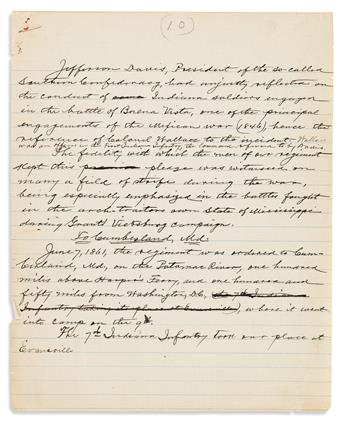 10
Jefferson Davis, President of the so-called
Southern Confederacy, had unjustly reflected on
the conduct of some Indiana soldiers engaged
in the battle of Buena Vista, one of the principal
engagements of the Mexican war (1846) hence the
reference of Colonel Wallace to the incident.
was an officer in the First Indiana Infantry, the command referred to by Davis.
The fidelity with which the men of our regiment
kept this promise pledge was witnessed on
many a field of strife during the war,
being especially emphasized in the battles fought
in the arch traitors own State of Mississippi
during Grants Vicksburg campaign.
To Cumberland, Md.
June 7, 1861, the regiment was ordered to Cum-
berland, Md., on the Potomac River, one hundred
miles above Harper's Ferry, and one hundred and
fifty miles from Washington, D.C., the 7th Indiana
Infantry taking its place at Evansville, where it went
into camp on the 9th.
The 7th Indiana Infantry took our place at
Evansville